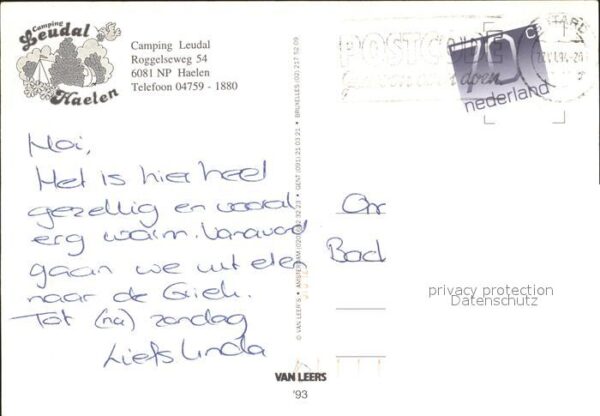 Camping
Leudal
Haelen
Camping Leudal
Roggelseweg 54
6081 NP Haelen
Telefoon 04759 - 1880
POSTCODE
nederland
Hoi,
Het is hier heel
gezellig en vooral
erg warm. Vanavond
gaan we uit eten
naar de Griek.
Tot (na) zondag
Liefs Linda
© VAN LEER'S • AMSTERDAM (020) 32 23 • GENT (091) 21 03 21 • BRUXELLES (02) 217 52 09
Bad
privacy protection
Datenschutz
VAN LEERS
'93